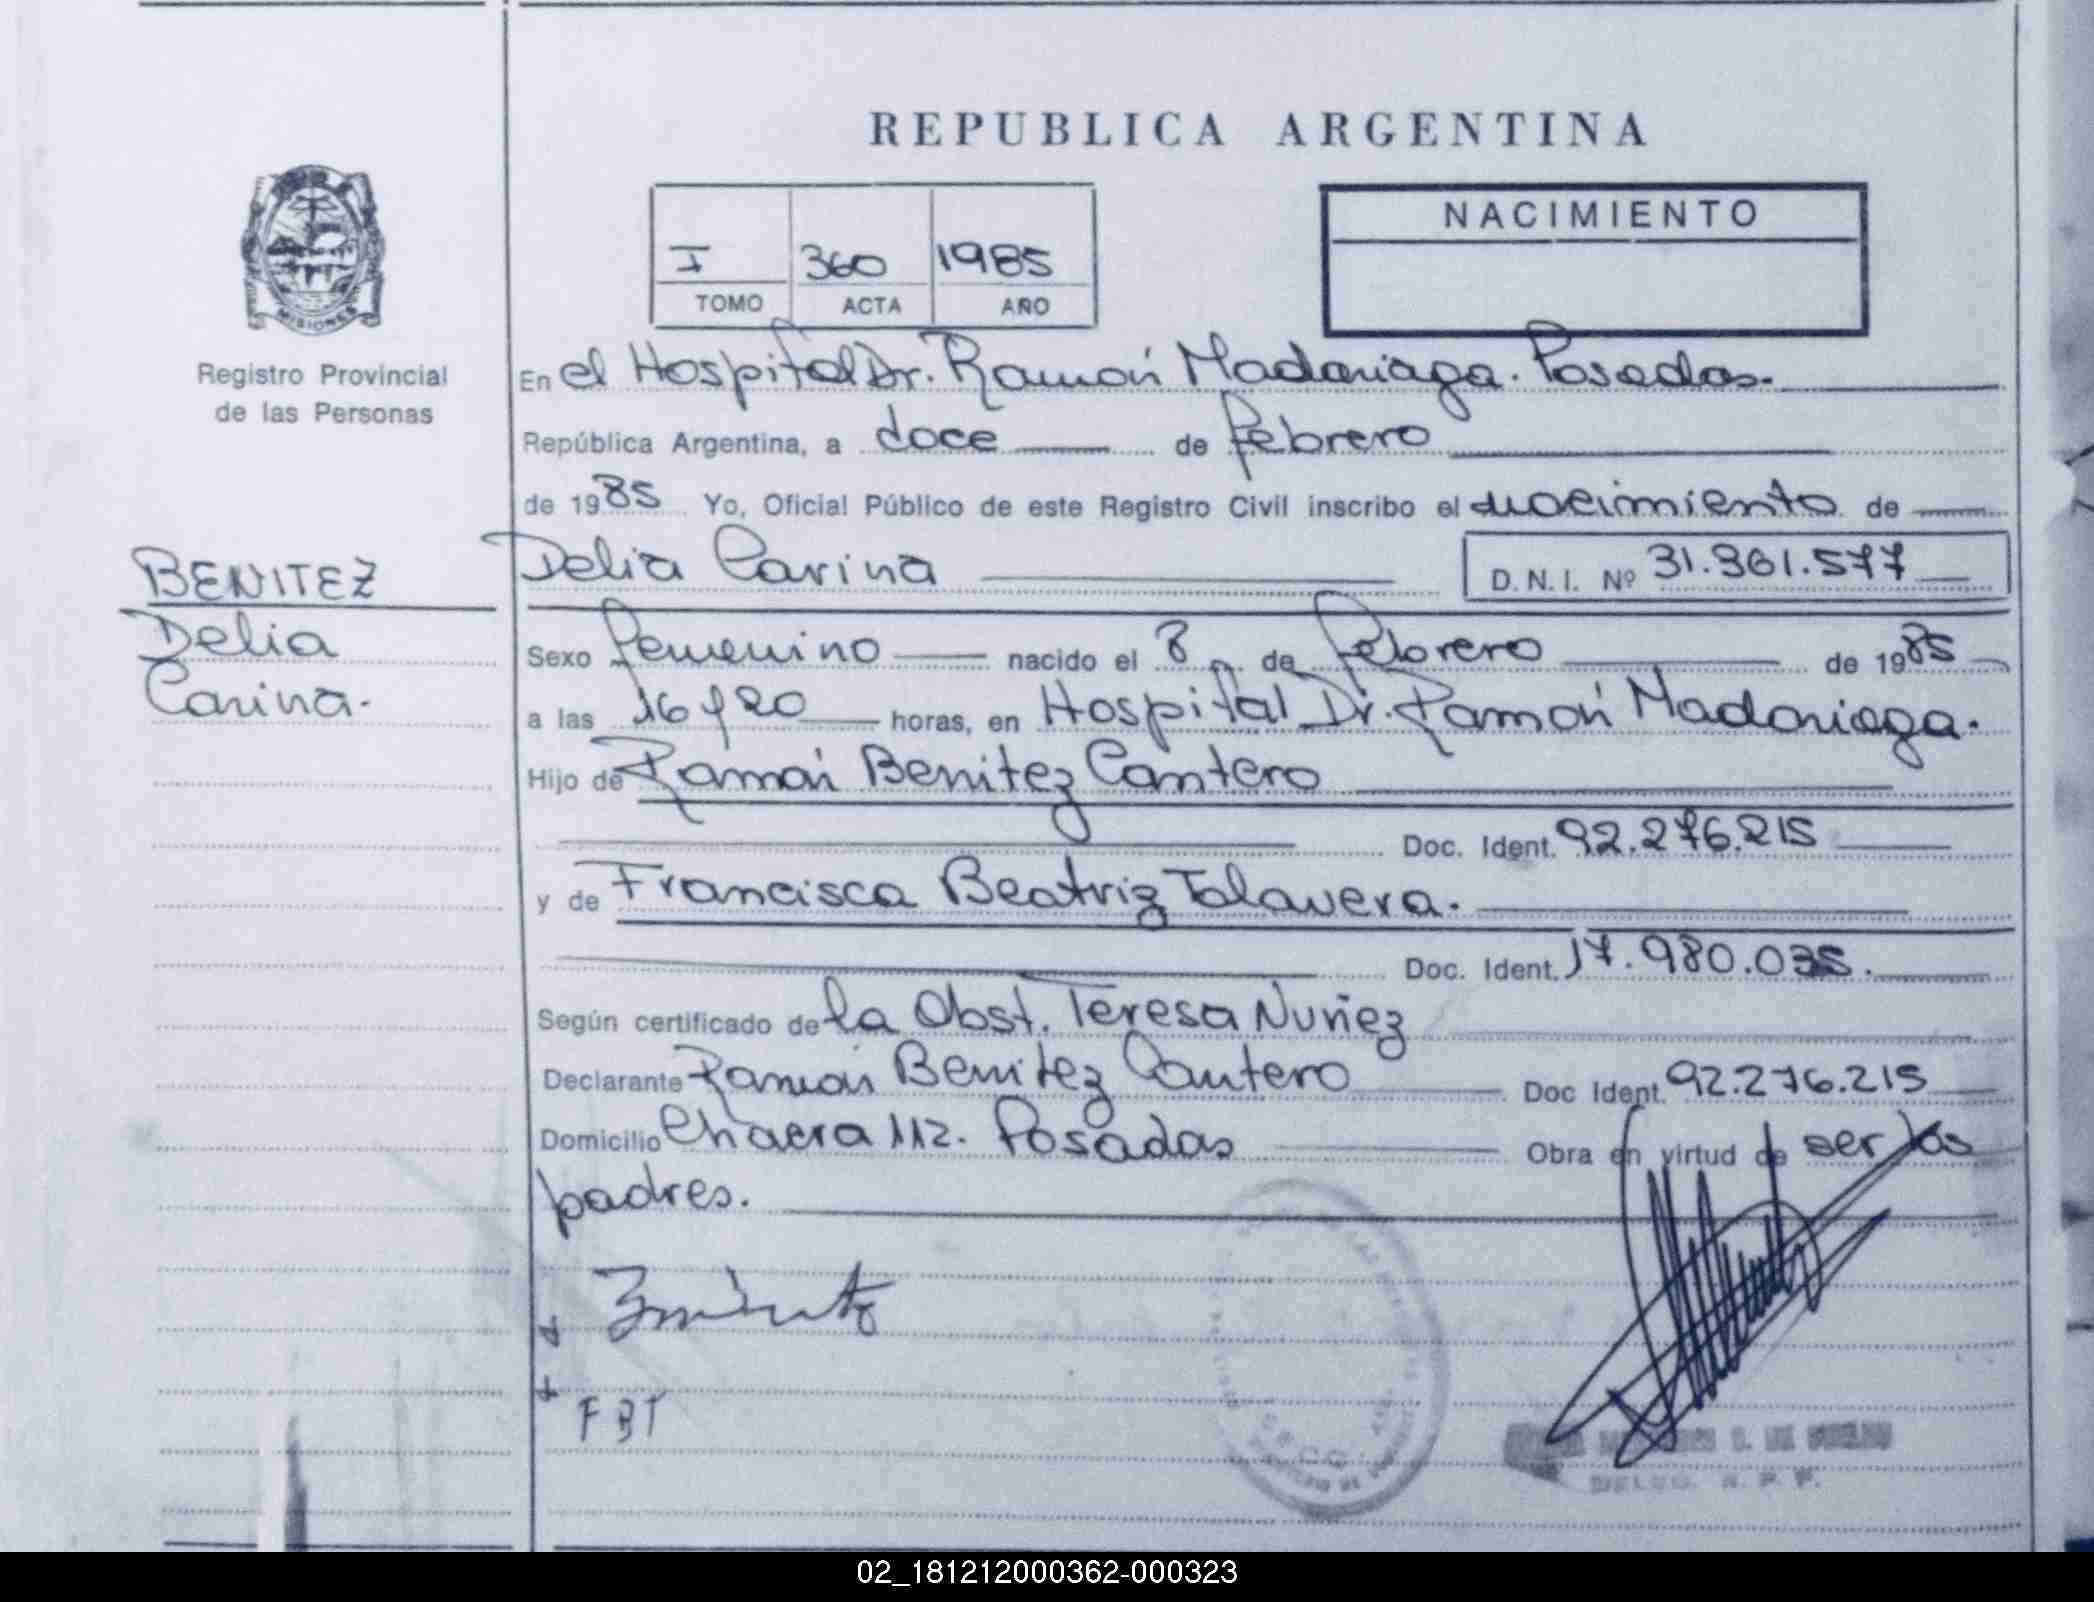 REPUBLICA ARGENTINA
I 360 1985
TOMO ACTA AÑO
NACIMIENTO
MISIONES
Registro Provincial
de las Personas
En el Hospital Dr. Ramón Madariaga. Posadas.
República Argentina, a doce de febrero
de 1985 Yo, Oficial Público de este Registro Civil inscribo el nacimiento de
BENITEZ
Delia
Carina.
Delia Carina
D.N.I. Nº 31.361.577
Sexo femenino nacido el 8 de febrero de 1985
a las 16 y 20 horas, en Hospital Dr. Ramón Madariaga.
Hijo de Ramón Benitez Cantero
Doc. Ident. 92.276.215
y de Francisca Beatriz Talavera.
Doc. Ident. 17.980.035.
Según certificado de la Obst. Teresa Nuñez
Declarante Ramón Benitez Cantero Doc Ident. 92.276.215
Domicilio Chacra 112. Posadas Obra en virtud de ser los
padres.
FBT
02_181212000362-000323